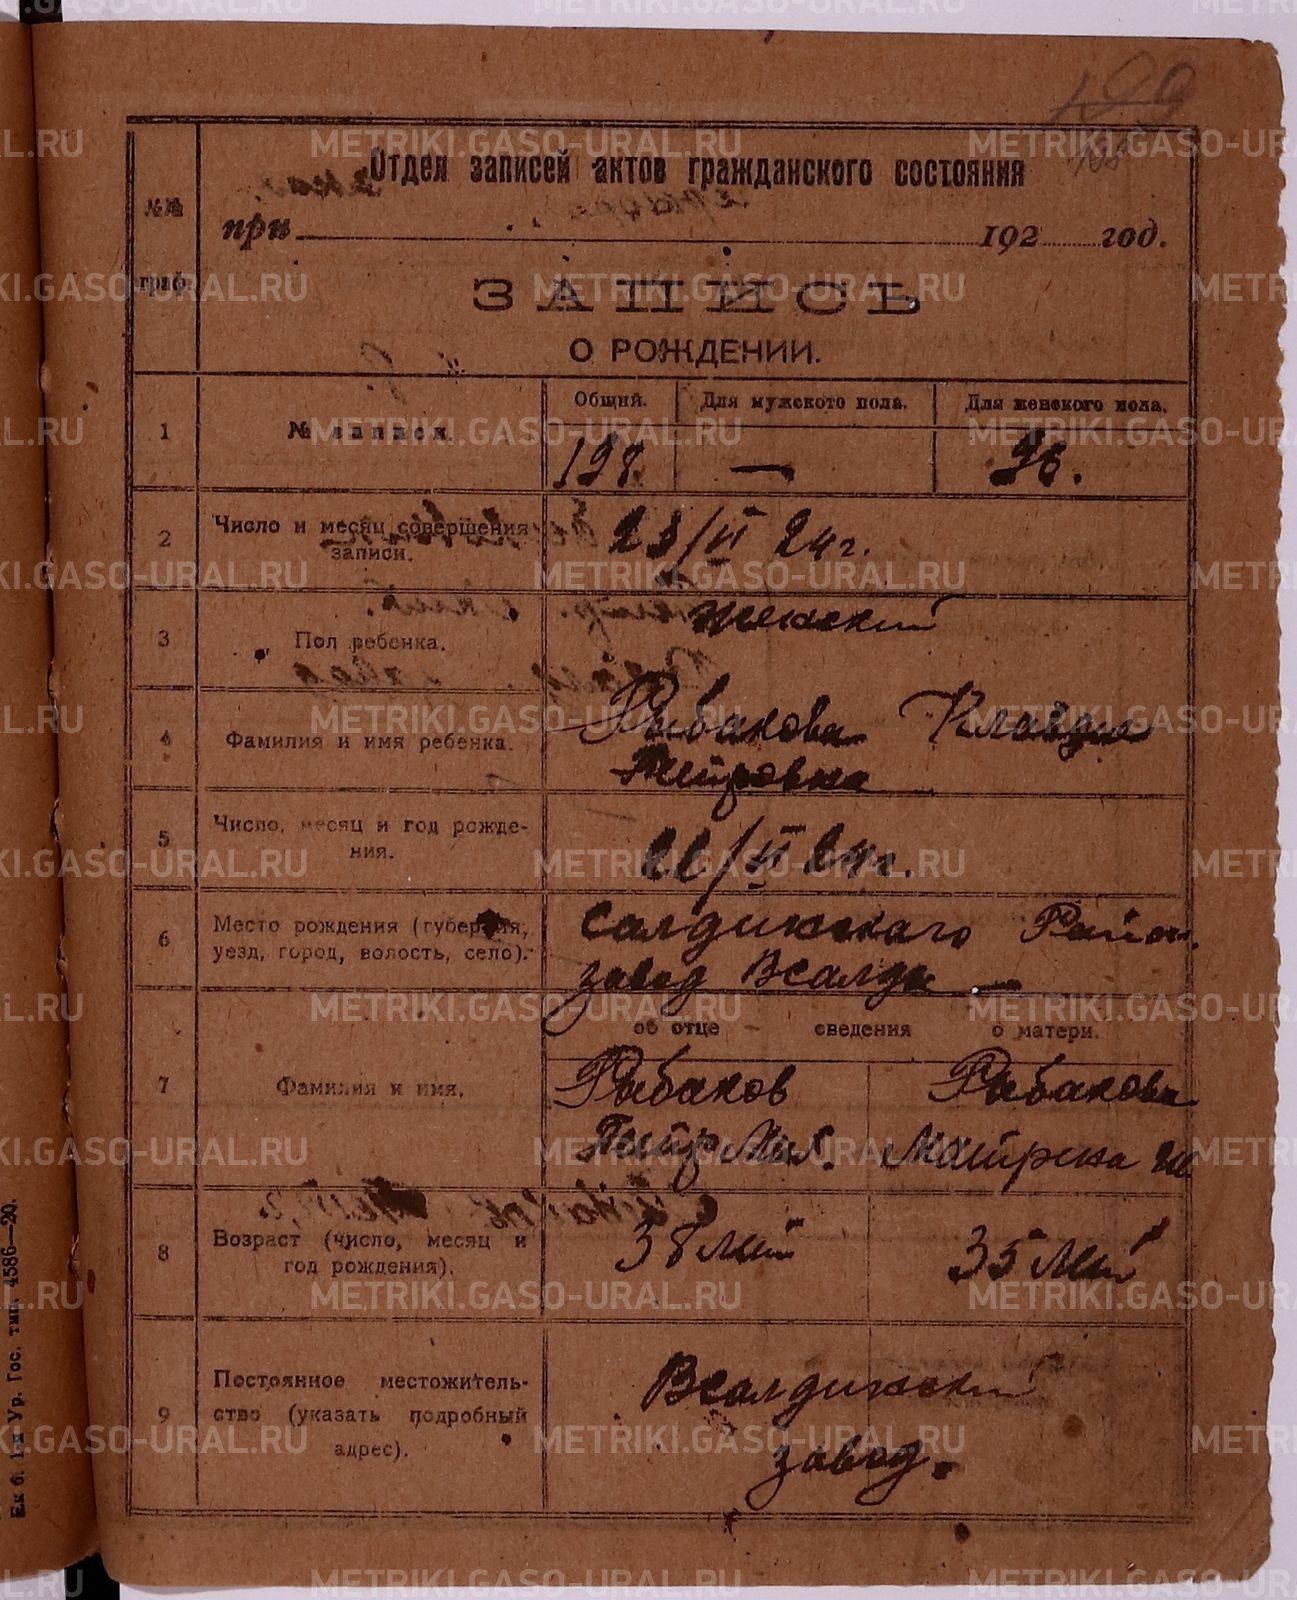 199
198
Отдел записей актов гражданского состояния
№№ граф.
при 192 год.
ЗАПИСЬ
О РОЖДЕНИИ.
1 № записи. Общий. Для мужского пола. Для женского пола.
198. — 96.
2 Число и месяц совершения записи. 23/VI 24 г.
3 Пол ребенка. женский
4 Фамилия и имя ребенка. Рыбакова Клавдия
Петровна
5 Число, месяц и год рождения. 22/VI 24 г.
6 Место рождения (губерния, Салдинскаго Район.
уезд, город, волость, село). завод Всалда —
об отце сведения о матери.
7 Фамилия и имя. Рыбаков Рыбакова
Петр Мих. Матрена
8 Возраст (число, месяц и год рождения). 38 лет 35 лет
9 Постоянное местожитель- Всалдинский
ство (указать подробный
адрес). завод.
Ек б. 1-я Ур. Гос. тип. 4586—20.
METRIKI.GASO-URAL.RU